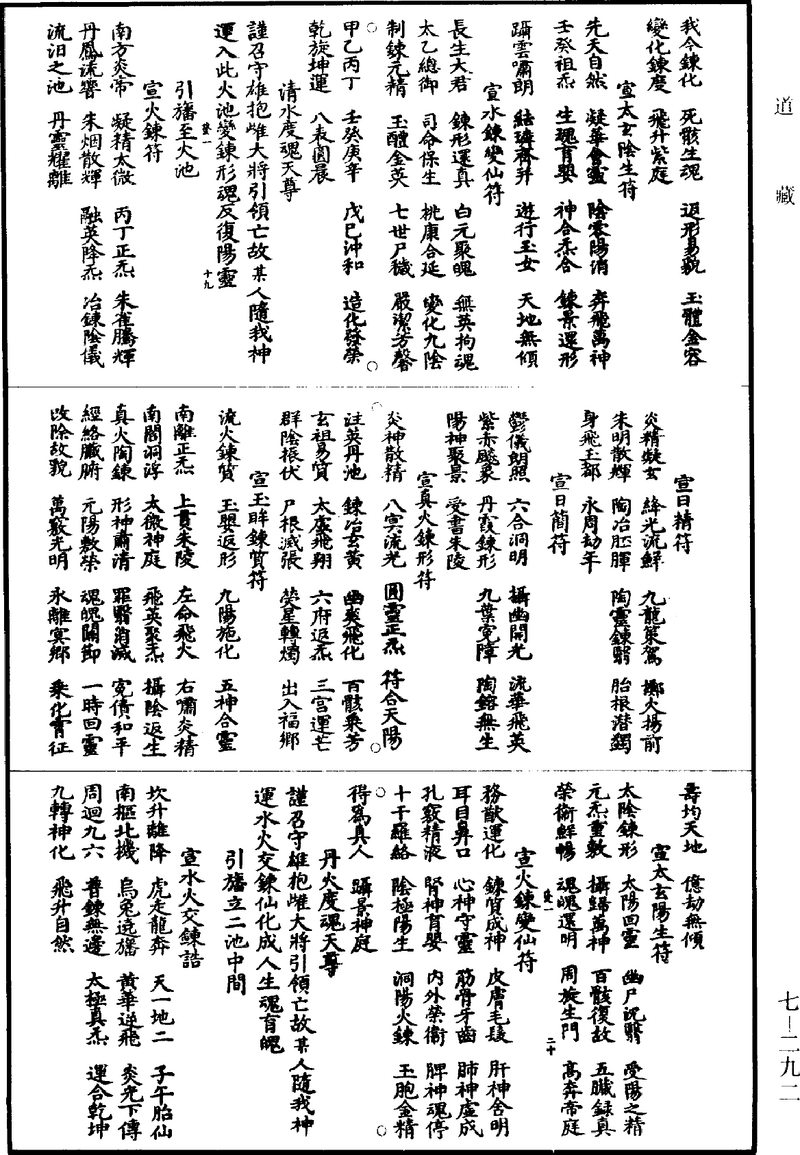 道藏
我今鍊化 死骸生魂 返形易貌 玉體金容
變化鍊度 飛升紫庭
宣太玄陰生符
先天自然 凝華會靈 陰雲陽消 奔飛萬神
壬癸祖炁 生魂育嬰 神合炁合 鍊景還形
躡雲嘯朗 結璘齊升 遊行玉女 天地無傾
宣水鍊變仙符
長生大君 鍊形還真 白元聚魄 無英拘魂
太乙總御 司命保生 桃康合延 變化九陰
制鍊元精 玉醴金英 七世尸穢 嚴潔芳馨
甲乙丙丁 壬癸庚辛 戊巳沖和 造化發榮
乾旋坤運 八表圓晨
清水度魂天尊
謹召守雄抱雌大將引領亡故某人隨我神
運入此火池變鍊形魂反復陽靈
十九
引旛至火池
宣火鍊符
南方炎帝 凝精太微 丙丁正炁 朱雀騰輝
丹鳳流響 朱烟散輝 融英降炁 冶鍊陰儀
流汨之池 丹靈耀離
宣日精符
炎精凝女 絳光流鮮 九龍策駕 擲火揚前
朱明散輝 陶冶胚腪 陶靈鍊翳 胎根潜蠲
身飛玉都 永周劫年
宣日簡符
鬱儀朗照 六合洞明 攝幽開光 流華飛英
紫赤飈象 丹霞鍊形 九葉冤障 陶鎔無生
陽神聚景 受書朱陵
宣真火鍊形符
炎神散精 八冥流光 圓靈正炁 符合天陽
注英丹池 鍊冶玄黄 幽炎飛化 百骸乘芳
玄祖易質 太虛飛翔 六府返炁 三宫運芒
群陰振伏 尸根滅張 熒星轉燭 出入福鄉
宣玉眸鍊質符
流火鍊質 玉嬰返形 九陽施化 五神合靈
南離正炁 上貫朱陵 左命飛火 右嘯炎精
南閣洞浮 太微神庭 飛英聚炁 攝陰返生
真火陶鍊 形神肅清 罪翳消滅 冤債和平
經絡臟腑 元陽敷榮 魂魄關節 一時回靈
改除故貌 萬竅光明 永離冥鄉 乘化霄征
壽均天地 億劫無傾
宣太玄陽生符
太陰鍊形 太陽回靈 幽尸説翳 受陽之精
元炁重敷 攝歸萬神 百骸復故 五臟録真
榮衞鮮暢 魂魄還明 周旋生門 高奔帝庭
二十
宣火鍊變仙符
務猷運化 鍊質成神 皮膚毛髮 肝神含明
耳目鼻口 心神守靈 筋骨牙齒 肺神虛成
孔竅精液 腎神育嬰 内外榮衞 脾神魂停
十千羅絡 陰極陽生 洞陽火鍊 玉胞金精
得爲真人 躡景神庭
丹火度魂天尊
謹召守雄抱雌大將引領亡故某人隨我神
運水火交鍊仙化成人生魂育魄
引旛立二池中間
宣水火交鍊誥
坎升離降 虎走龍奔 天一地二 子午胎仙
南樞北機 烏兔遶旛 黄華逆飛 炎光下傳
周迴九六 尊鍊無邊 太極真炁 運合乾坤
九轉神化 飛升自然
七—二九二